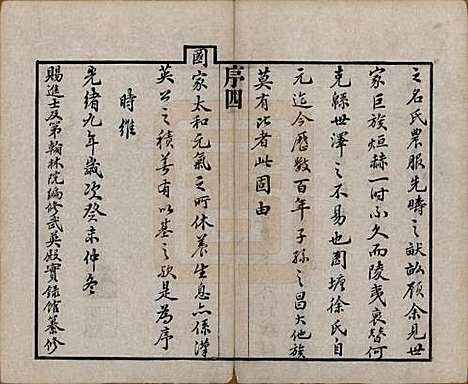 之名氏農服先疇之畎畝顧余見世
家巨族烜赫一時不久而陵夷衰替何
克緜世澤之不易也圖塘徐氏自
元迄今歷數百年子孫之昌大他族
莫有比者此固由
序四
國家太和元氣之所休養生息亦係漢
英公之積善有以基之歟是為序
時維
光緒九年歲次癸未仲冬
賜進士及第翰林院編修武英殿實錄館纂修